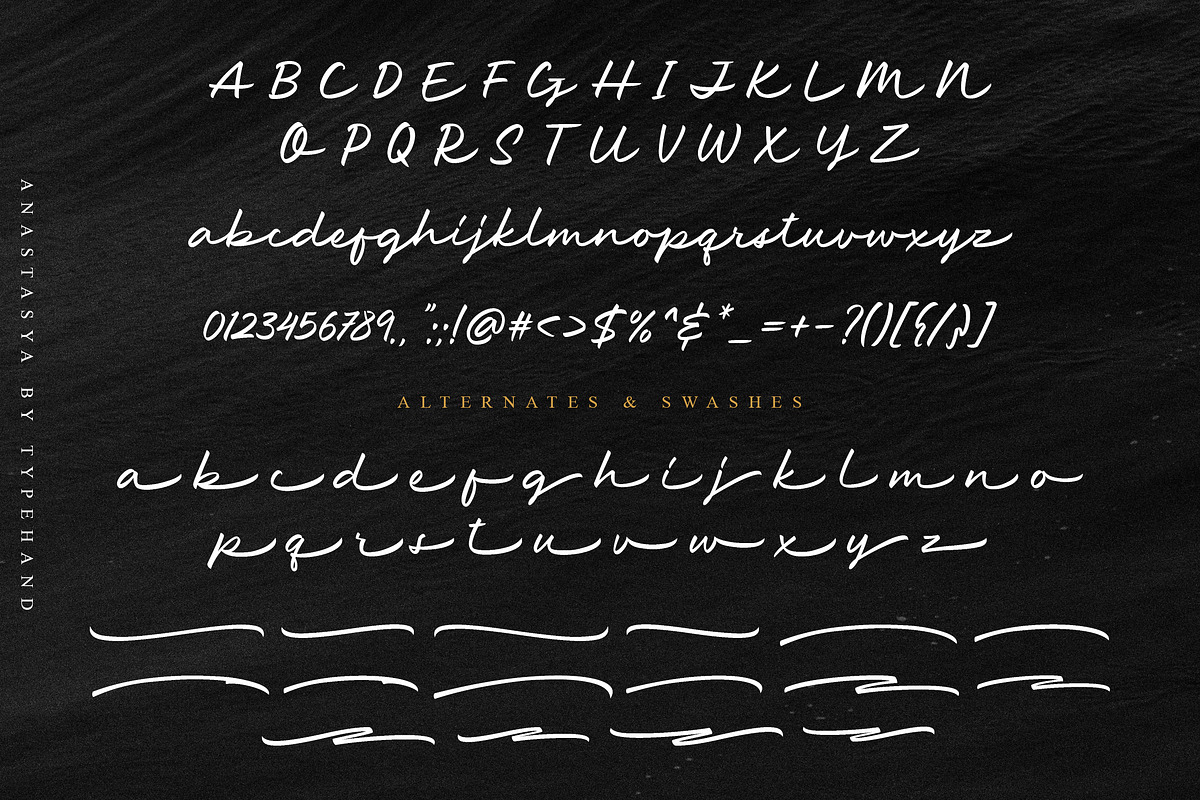 A B C D E F G H I J K L M N
O P Q R S T U V W X Y Z
abcdefghijklmnopqrstuvwxyz
0123456789., ";:;!@#<>$%^&*_=+-?()[{/}]
ALTERNATES & SWASHES
a b c d e f g h i j k l m n o
p q r s t u v w x y z
ANASTASYA BY TYPEHAND